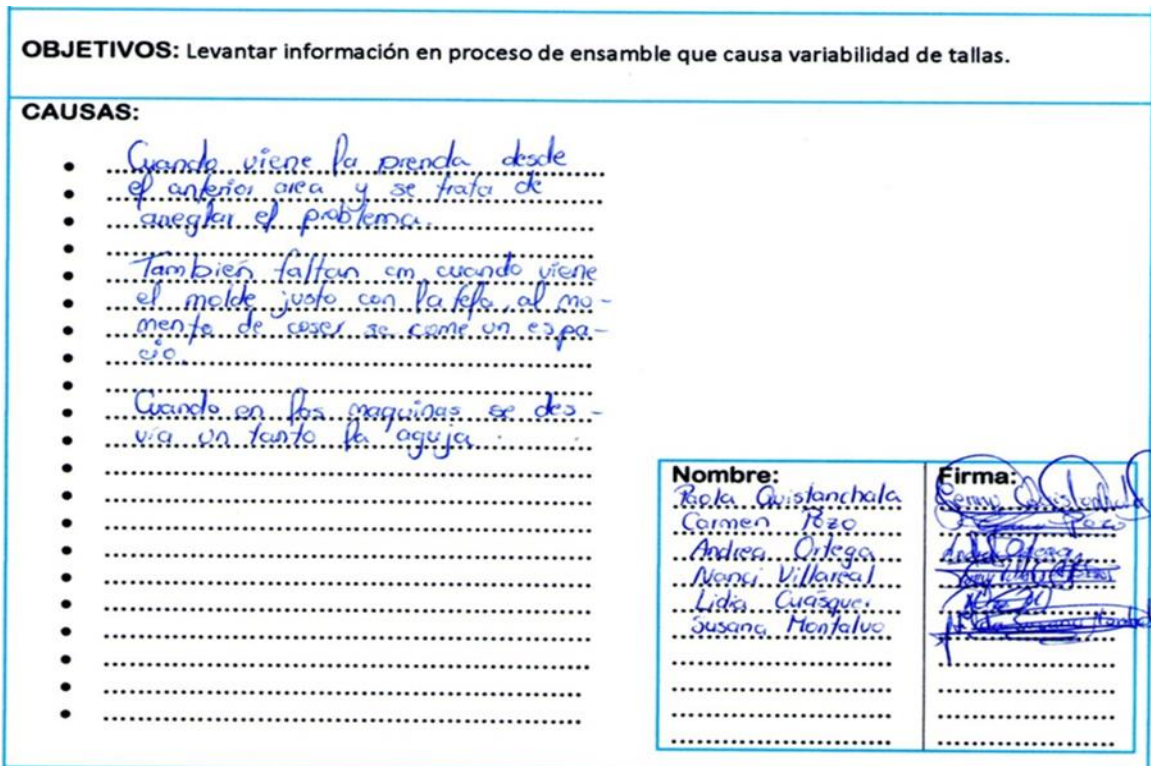 OBJETIVOS: Levantar información en proceso de ensamble que causa variabilidad de tallas.
CAUSAS:
Cuando viene la prenda desde
el anterior area y se trata de
arreglar el problema.
Tambien faltan cm cuando viene
el molde justo con la tela, al mo-
mento de coser se come un espa-
cio.
Cuando en las maquinas se des-
via un tanto la aguja.
Nombre:
Paola Quistanchala
Carmen Pozo
Andrea Ortega
Nanci Villareal
Lidia Cuásquer
Susana Montalvo
Firma:
Pozo
Andrea Ortega